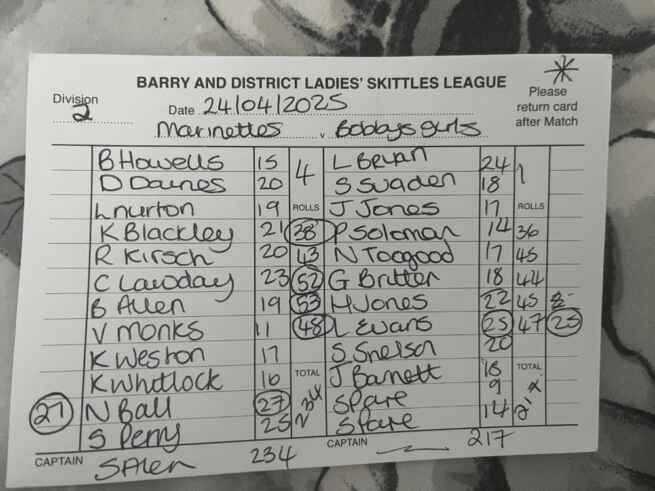 BARRY AND DISTRICT LADIES' SKITTLES LEAGUE
Division 2
Date 24/04/2025
Please return card after Match
Marinettes v Bobbys Gurls
B Howells 15 4 L Bryan 24 1
D Davies 20 S Sugden 18
L Nurton 19 ROLLS J Jones 17 ROLLS
K Blackley 21 38 P Soloman 14 36
R Kirsch 20 43 N Toogood 17 45
C Lawday 23 52 G Britten 18 44
B Allen 19 53 H Jones 22 45
V Monks 11 48 L Evans 25 47 25
K Weston 17 S Snelson 20
K Whitlock 16 TOTAL J Barnett 18 TOTAL
27 N Ball 27 Spare 9
S Perry 25 Spare 14
CAPTAIN 234 CAPTAIN 217